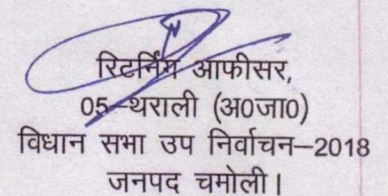 रिटर्निंग आफीसर,
05-थराली (अ0जा0)
विधान सभा उप निर्वाचन-2018
जनपद चमोली।